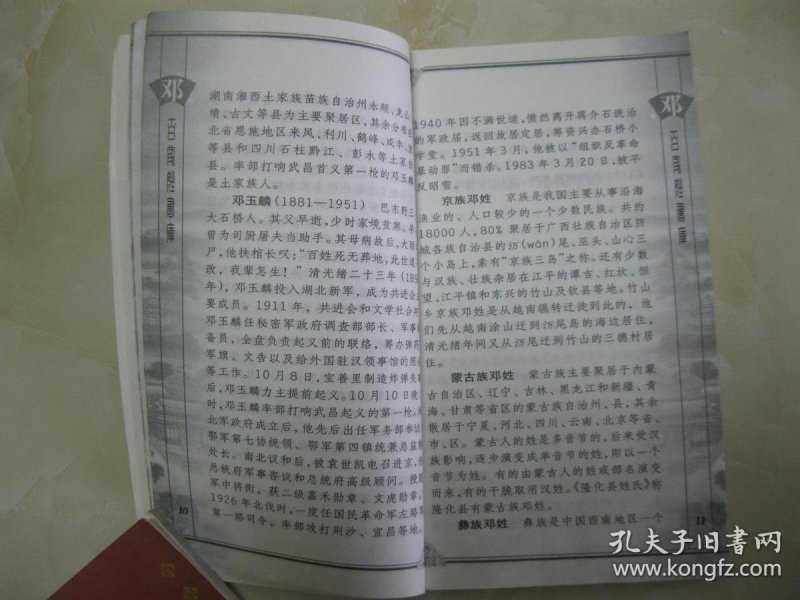 邓
百家姓書庫
湖南湘西土家族苗族自治州永顺、龙山
靖、古丈等县为主要聚居区，其余分布在
北省恩施地区来凤、利川、鹤峰、咸丰、
等县和四川石柱黔江、彭水等土家
县。率部打响武昌首义第一枪的邓玉麟
是土家族人。
邓玉麟（1881—1951） 巴东野三
大石桥人。其父早逝，少时家境贫寒。早
曾为司厨屠夫当助手。其母病故后，大
尸，他扶棺长叹：“百姓死无葬地，此世道
改，我辈怎生！”清光绪二十三年（189
年），邓玉麟投入湖北新军，成为共进会
要成员。1911年，共进会和文学社合
邓玉麟任秘密军政府调查部部长、军事
备员，全盘负责起义前的联络，筹办弹药
军旗、文告以及给外国驻汉领事馆的照会
等工作。10月8日，宝善里制造炸弹失事
后，邓玉麟力主提前起义。10月10日晚
时，邓玉麟率部打响武昌起义的第一枪。
北军政府成立后，他先后出任军务部参议
鄂军第七协统领、鄂军第四镇统兼总监
处长。南北议和后，被袁世凯电召进京，
总统府军事咨议和总统府高级顾问。授陆
军中将衔，获二级嘉禾勋章、文虎勋章。
1926年北伐时，一度任国民革命军左路
第一路司令，率部攻打荆沙、宜昌等地。
10
邓
百家姓書庫
1940年因不满世道，愤然离开蒋介石统治
的军政届，返回故居定居，筹资兴办石桥小
学堂。1951年3月，他被以“组织反革命
暴动罪”而错杀。1983年3月20日，被平
反昭雪。
京族邓姓 京族是我国主要从事沿海
渔业的、人口较少的一个少数民族。共约
18000人，80%聚居于广西壮族自治区防
城各族自治县的沥（wān）尾、巫头、山心三
个小岛上，素有“京族三岛”之称。还有少数
与汉族、壮族杂居在江平的谭吉、红坎、恒
望、江平镇和东兴的竹山及钦县等地。竹山
乡京族邓姓是从越南辗转迁徙到此的，他
们先从越南涂山迁到沥尾岛的海边居住，
清光绪年间又从沥尾迁到竹山的三德村居
住。
蒙古族邓姓 蒙古族主要聚居于内蒙
古自治区、辽宁、吉林、黑龙江和新疆、青
海、甘肃等省区的蒙古族自治州、县，其余
散居于宁夏、河北、四川、云南、北京等省、
市、区。蒙古人的姓是多音节的，后来受汉
族影响，逐步演变成单音节的姓，即以一个
音节为姓。有的由蒙古人的姓或部名演变
而来，有的干脆取用汉姓。《隆化县姓氏》称
隆化县有蒙古族邓姓。
彝族邓姓 彝族是中国西南地区一个
11
孔夫子旧书网
www.kongfz.com